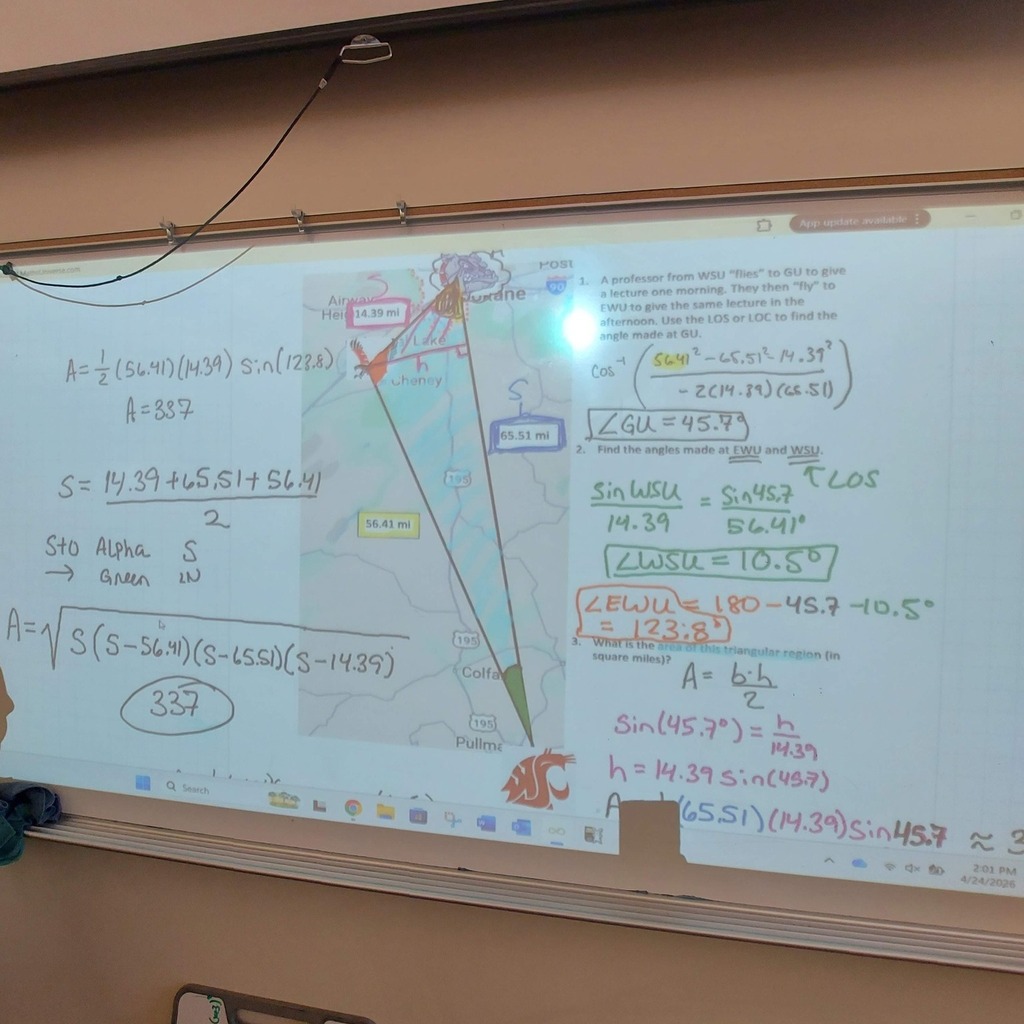 App update available
A = 1/2 (56.41)(14.39) sin(123.8)
A = 337
S = 14.39 + 65.51 + 56.41
2
STO Alpha S
→ Green IN
A = √S(S-56.41)(S-65.51)(S-14.39)
337
S
14.39 mi
Airway
Hei
Lake
h
Cheney
Post
90
kane
S
65.51 mi
195
56.41 mi
195
Colfa
195
Pullma
1. A professor from WSU "flies" to GU to give
a lecture one morning. They then "fly" to
EWU to give the same lecture in the
afternoon. Use the LOS or LOC to find the
angle made at GU.
Cos⁻¹ (56.41² - 65.51² - 14.39²
-2(14.39)(65.51))
∠GU = 45.7°
2. Find the angles made at EWU and WSU.
↑ LOS
Sin WSU = Sin 45.7
14.39 56.41°
∠WSU = 10.5°
∠EWU = 180 - 45.7 - 10.5°
= 123.8°
3. What is the area of this triangular region (in
square miles)?
A = b·h
2
Sin(45.7°) = h
14.39
h = 14.39 sin(45.7)
A (65.51)(14.39) sin 45.7 ≈ 3
Search
2:01 PM
4/24/2026